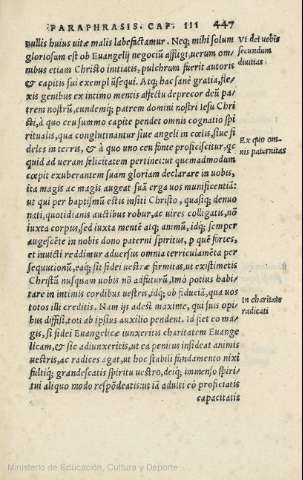 PARAPHRASIS. CAP. III 447
nullis huius uitæ malis labefactamur. Neq; mihi solum
gloriosum est ob Euangelij negociũ affligi, uerum om
nibus etiam Christo initiatis, pulchrum fuerit autoris
& capitis sui exemplũ sequi. Atq; hac sanè gratia, fle-
xis genibus ex intimo mentis affectu deprecor deũ pa
trem nostrũ, eundemq; patrem domini nostri Iesu Chri
sti, à quo ceu summo capite pendet omnis cognatio spi
ritualis, qua conglutinantur siue angeli in cœlis, siue fi
deles in terris, & à quo uno ceu fonte proficiscitur, qc
quid ad ueram felicitatem pertinet: ut quemadmodum
cœpit exuberantem suam gloriam declarare in uobis,
ita magis ac magis augeat suã erga uos munificentiã:
ut qui per baptismũ estis insiti Christo, quasiq; denuo
nati, quotidianis auctibus robur, ac uires colligatis, nõ
iuxta corpus, sed iuxta mentẽ atq; animũ, idq; semper
augescẽte in uobis dono paterni spiritus, p quẽ fortes,
et inuicti reddimur aduersus omnia terriculamẽta per
sequutionũ, eaq; sit fidei uestræ firmitas, ut existimetis
Christũ nusquam uobis nõ adfuturũ, Imò potius habi-
tare in intimis cordibus uestris, idq; ob fiduciã, qua uos
totos illi creditis. Nam ijs adest maxime, qui suis opi-
bus diffisi, toti ab ipsius auxilio pendent. Id fiet eo ma-
gis, si fidei Euangelicæ iunxeritis charitatem Euange
licam, & sic adiunxeritis, ut ea penitus insideat animis
uestris, ac radices agat, ut hoc stabili fundamento nixi
fultiq; grandescatis spiritu uestro, deiq; immenso spiri-
tui aliquo modo respõdeatis: ut iã adulti cõ profectatis
capacitatis
Vt det uobis
secundum
diuitias
Ex quo om-
nis paternitas
In charitate
radicati
Ministerio de Educación, Cultura y Deporte